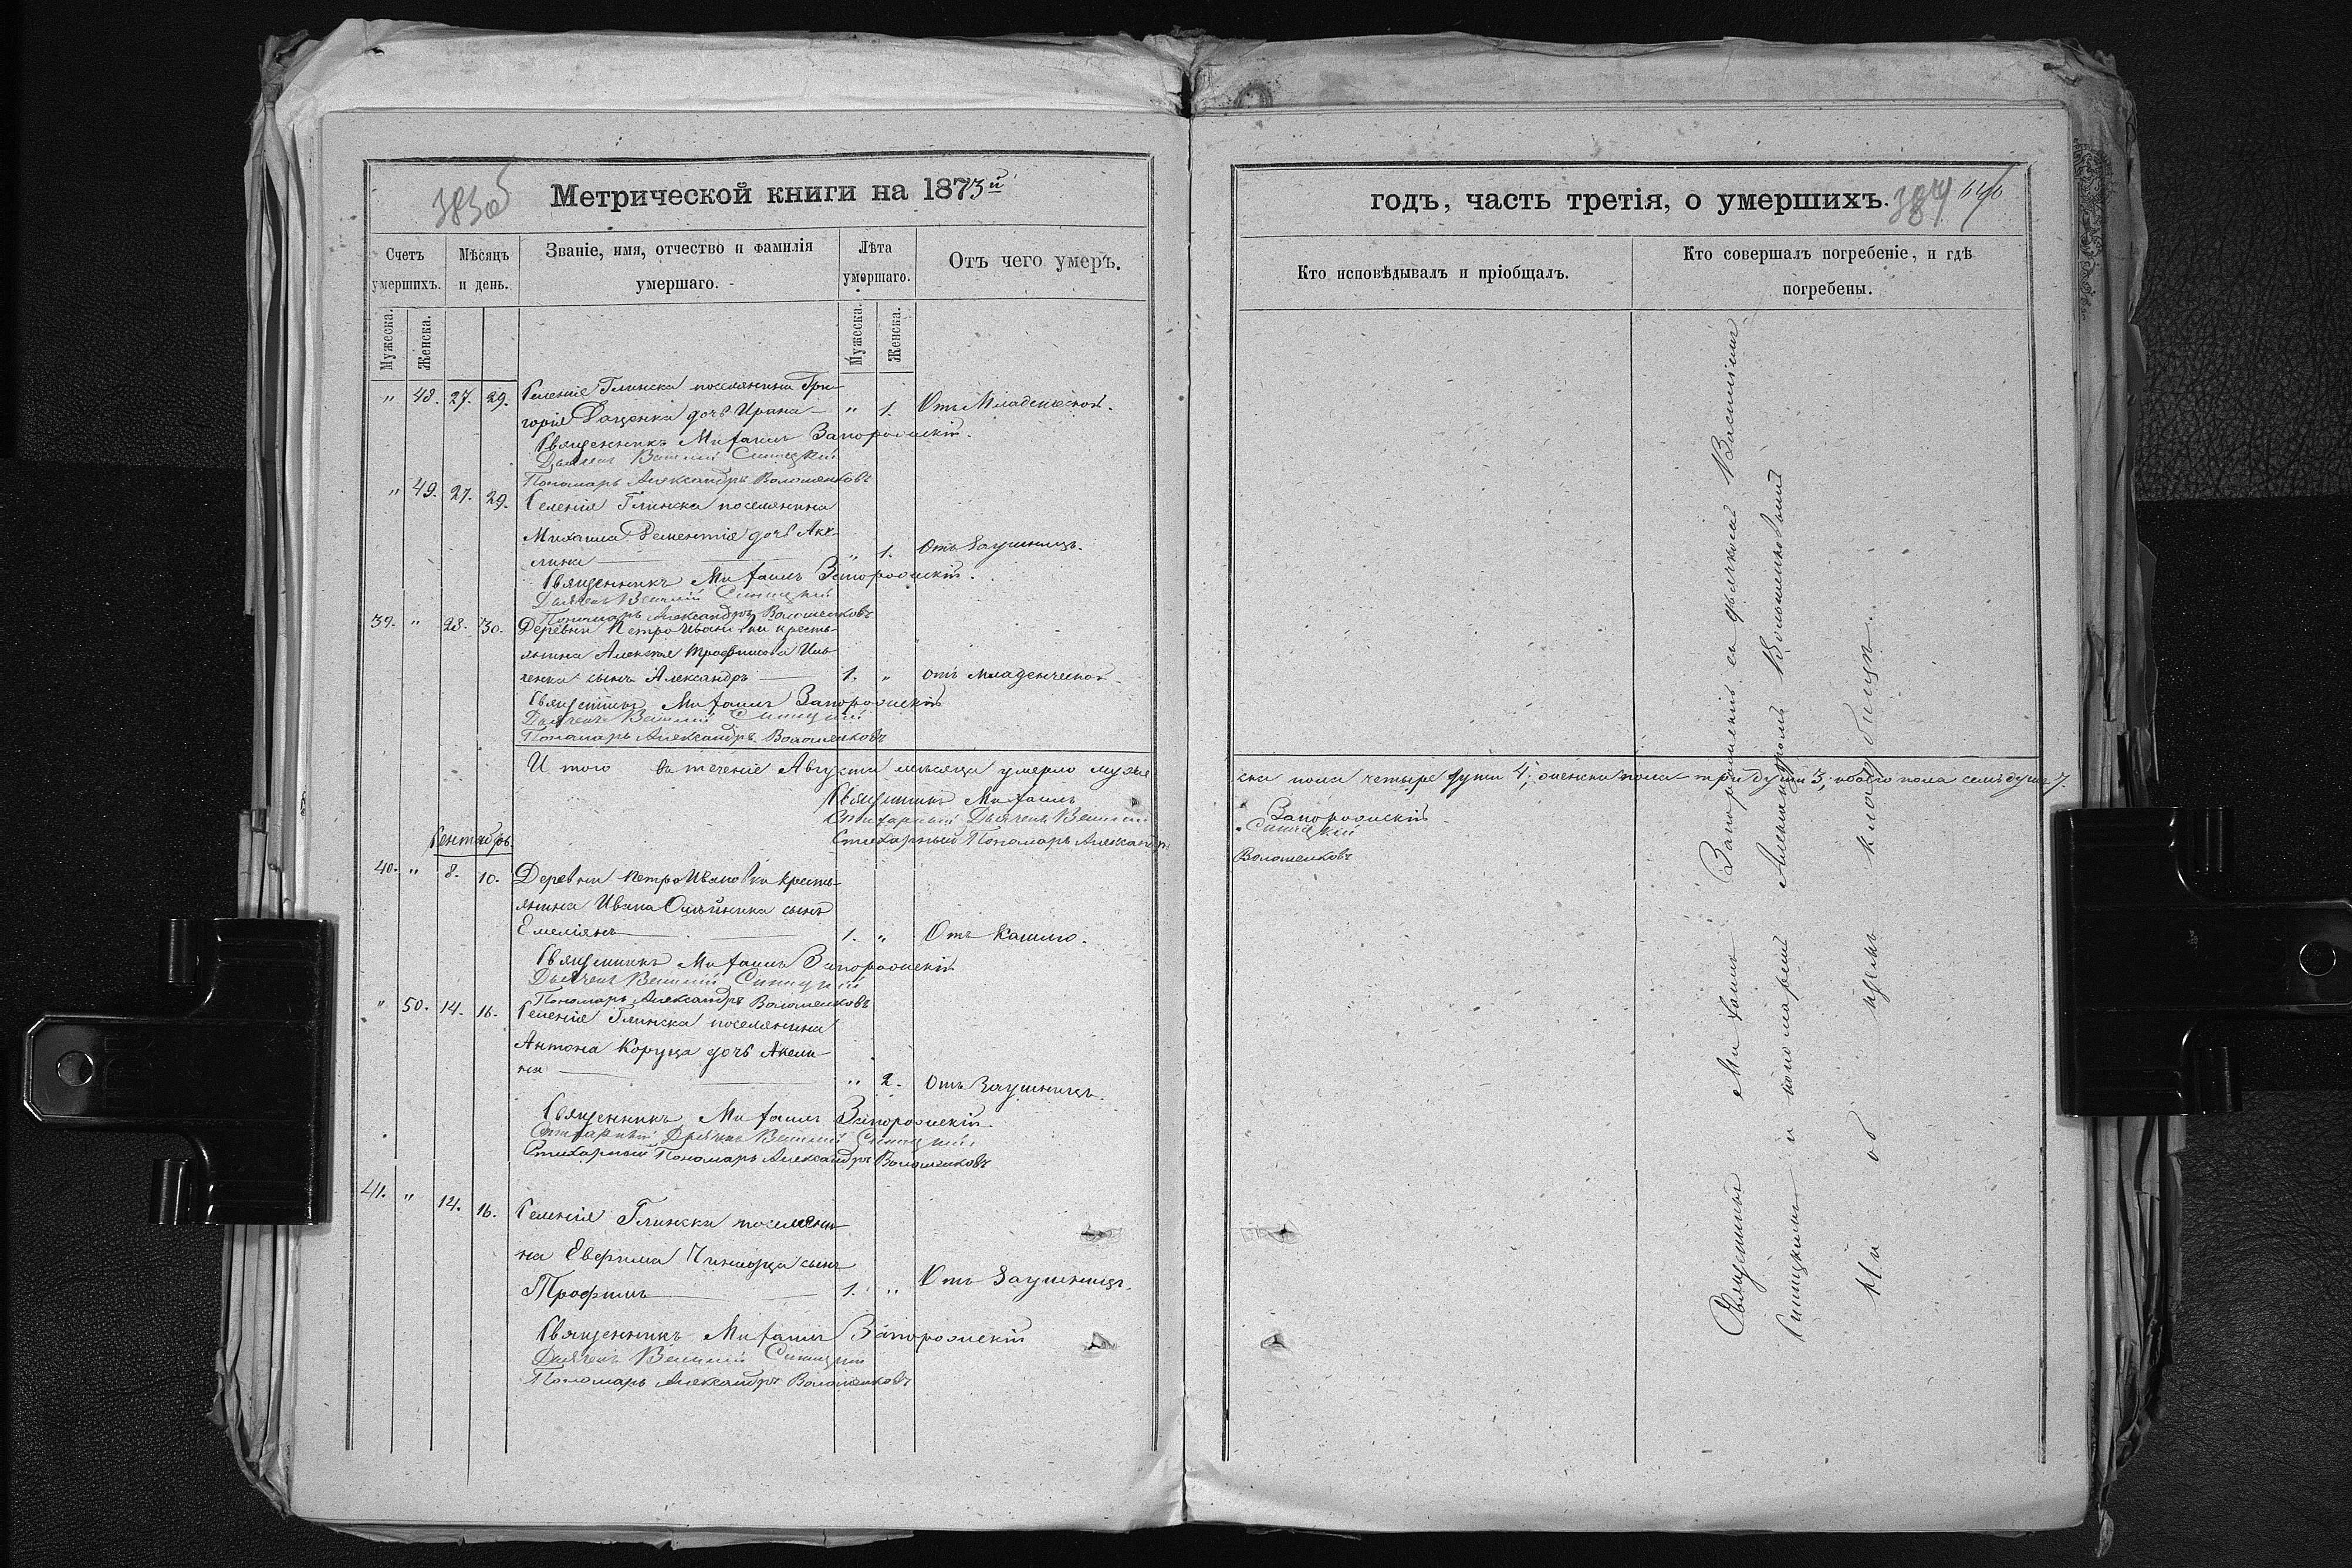 383об
Метрической книги на 1873й
Счетъ умершихъ.
Мѣсяцъ и день.
Званіе, имя, отчество и фамилія умершаго.
Лѣта умершаго.
Отъ чего умеръ.
Мужеска.
Женска.
Мужеска.
Женска.
" 48. 27. 29. Селенія Глинска поселянина Гри-
горія Даценка дочь Ирина " 1. Отъ Младенческой.
Священникъ Михаилъ Запорожскій.
Дьячекъ Василій Синицкій
Пономарь Александръ Волошенковъ
" 49. 27. 29. Селенія Глинска поселянина
Михаила Дементія дочь Аки-
лина " 1. Отъ Заушницъ.
Священникъ Михаилъ Запорожскій.
Дьячекъ Василій Синицкій
Пономарь Александръ Волошенковъ
39. " 28. 30. Деревни ПетроИвановки кресть-
янина Алексѣя Трофимова
сынъ Александръ 1. " отъ младенческой.
Священникъ Михаилъ Запорожскій
Дьячекъ Василій Синицкій
Пономарь Александръ Волошенковъ
И того въ теченіе Августа мѣсяца умерло муже
Священникъ Михаилъ
Стихарный Дьячекъ Василій
Стихарный Пономарь Александръ
Сентябрь.
40. " 8. 10. Деревни ПетроИвановки кресть-
янина Ивана Олійника сынъ
Емеліянъ 1. " Отъ Кашлю.
Священникъ Михаилъ Запорожскій
Дьячекъ Василій Синицкій
Пономарь Александръ Волошенковъ
" 50. 14. 16. Селенія Глинска поселянина
Антона Коруца дочь Акели-
на " 2. Отъ Заушницъ.
Священникъ Михаилъ Запорожскій.
Стихарный Дьячекъ Василій Синицкій
Стихарный Пономарь Александръ Волошенковъ
41. " 14. 16. Селенія Глинска поселяни-
на Евфима сынъ
Трофимъ 1. " Отъ Заушницъ.
Священникъ Михаилъ Запорожскій
Дьячекъ Василій Синицкій
Пономарь Александръ Волошенковъ
годъ, часть третія, о умершихъ.
384
Кто исповѣдывалъ и пріобщалъ.
Кто совершалъ погребеніе, и гдѣ погребены.
ска пола четыре души 4; женска пола три души 3; обоего пола семь душъ 7.
Запорожскій
Синицкій
Волошенковъ
Священникъ Михаилъ Запорожскій съ дьячкомъ Василіемъ
Синицкимъ и пономаремъ Александромъ Волошенковымъ
На общемъ кладбищѣ.